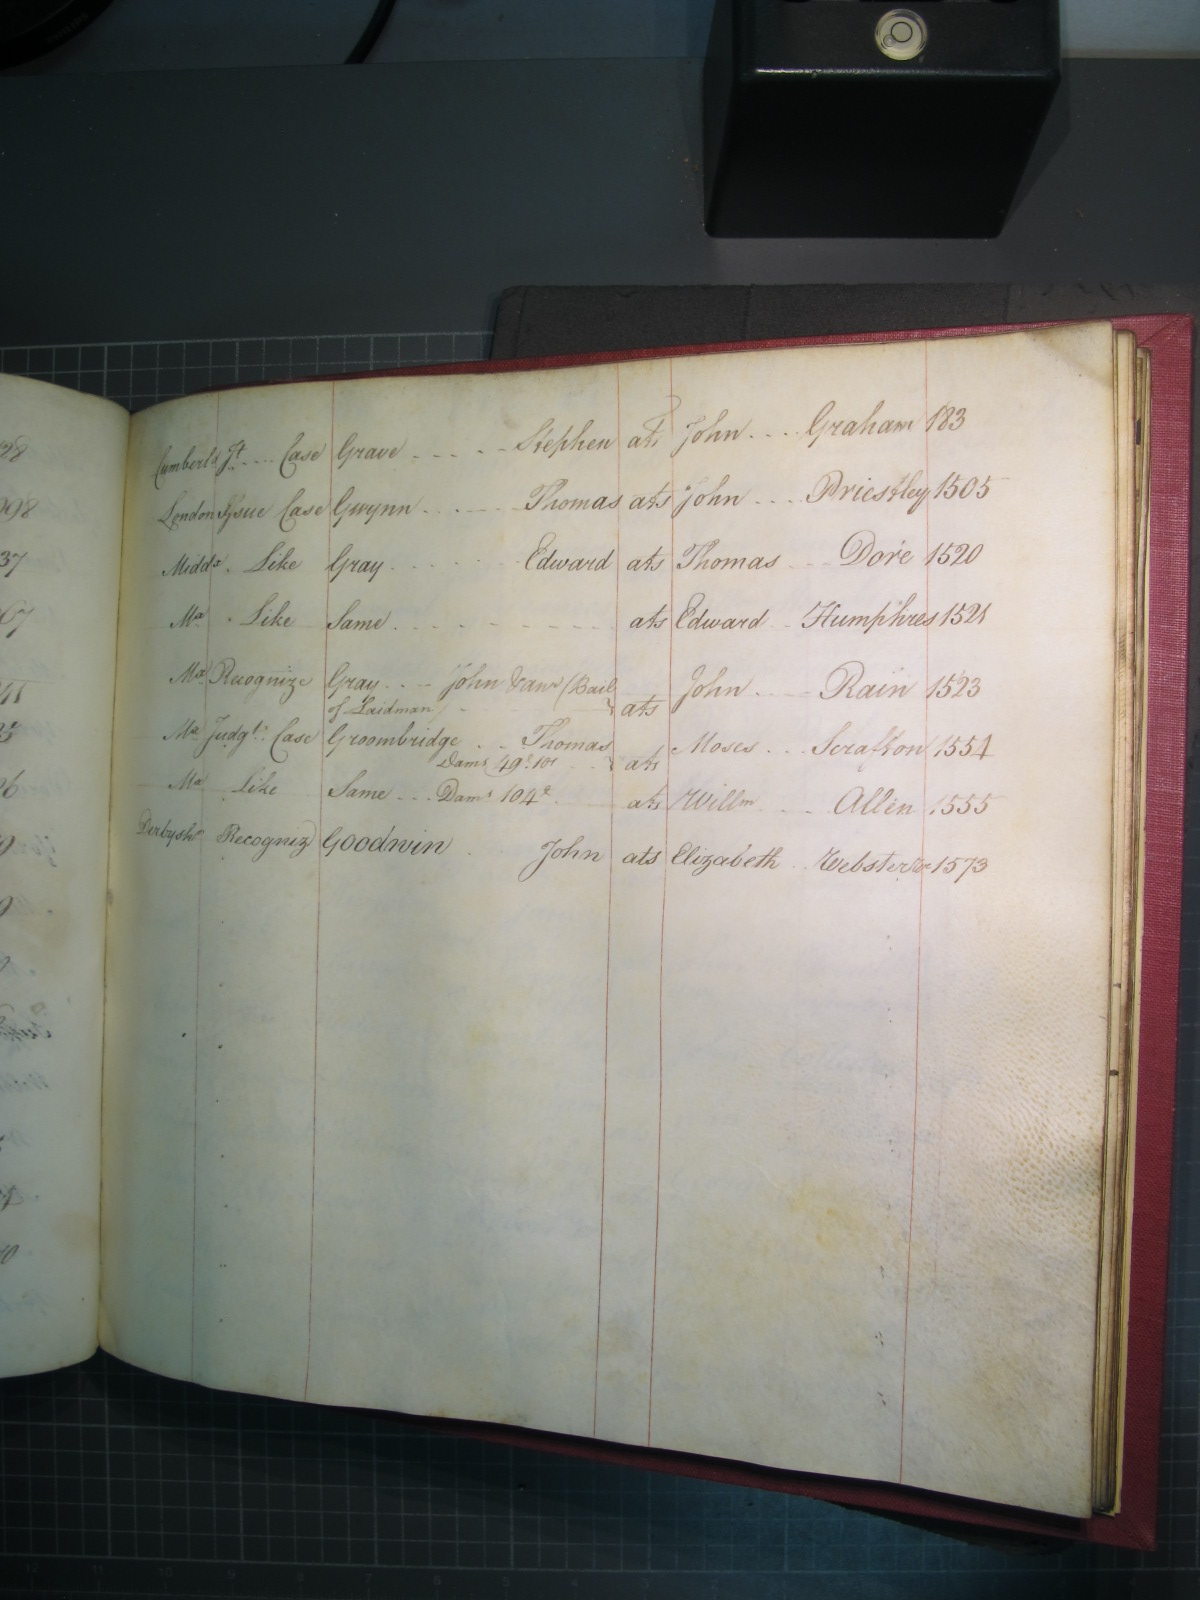 Cumberld Jt .... Case Grave - - - - - Stephen ats John .... Graham 183
London Issue Case Gwynn ..... Thomas ats John .... Priestley 1505
Middx . Like Gray ...... Edward ats Thomas ... Dore 1520
Mx . Like Same . - - - - - - - ats Edward .. Humphres 1521
Mx Recognize Gray .... John (Bail ats John .... Rain 1523
of Laidman)
Mx Judgt. Case Groombridge .. Thomas ats Moses ... Scraffon 1554
Dams 49£ 10s
Mx Like Same ... Dams 104£ ats Willm ... Allen 1555
Derbyshr Recogniz Goodwin . John ats Elizabeth .. Webster 1573
28
998
37